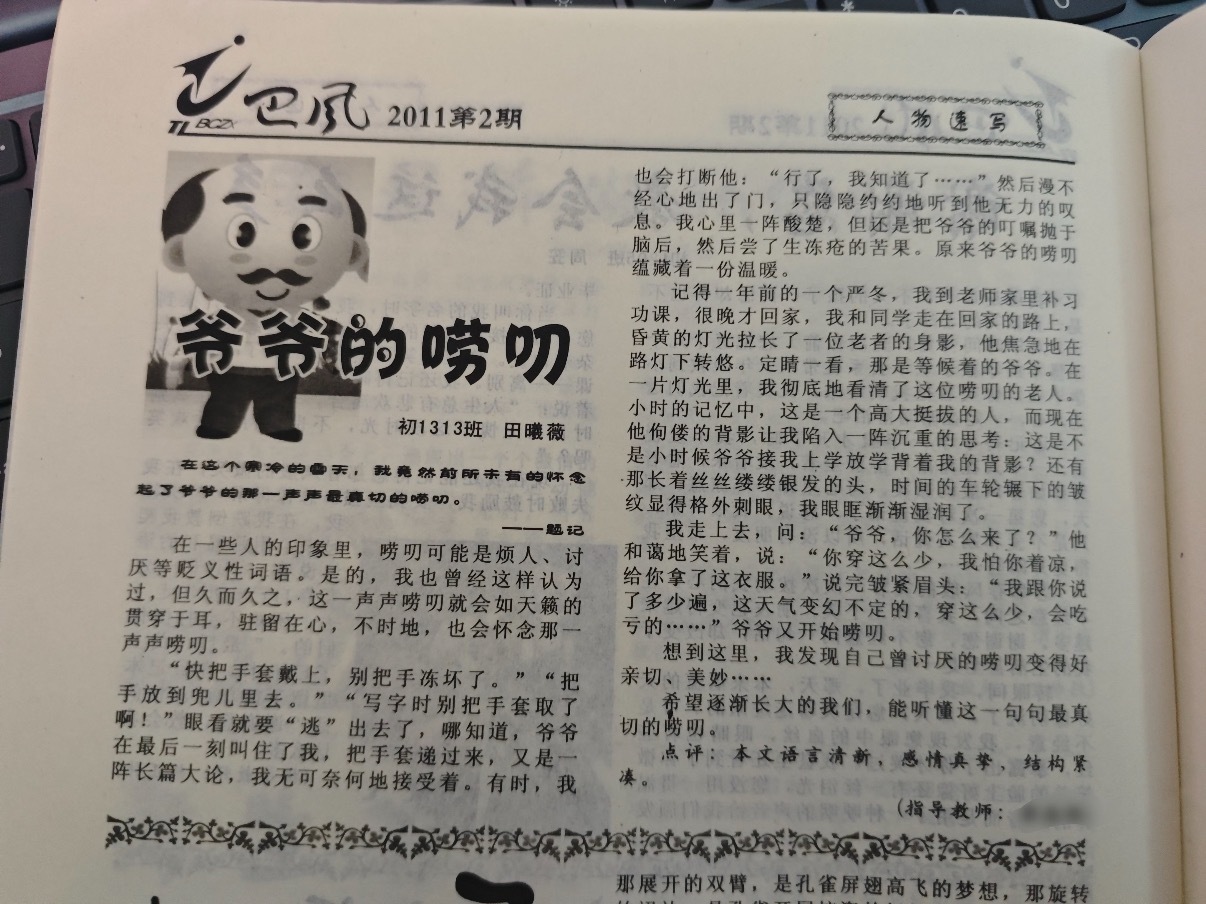 TL BCZX 巴风 2011第2期
人物速写
爷爷的唠叨
初1313班 田曦薇
在这个寒冷的雪天，我竟然前所未有的怀念
起了爷爷的那一声声最真切的唠叨。
——题记
在一些人的印象里，唠叨可能是烦人、讨
厌等贬义性词语。是的，我也曾经这样认为
过，但久而久之，这一声声唠叨就会如天籁的
贯穿于耳，驻留在心，不时地，也会怀念那一
声声唠叨。
“快把手套戴上，别把手冻坏了。”“把
手放到兜儿里去。”“写字时别把手套取了
啊！”眼看就要“逃”出去了，哪知道，爷爷
在最后一刻叫住了我，把手套递过来，又是一
阵长篇大论，我无可奈何地接受着。有时，我
也会打断他：“行了，我知道了……”然后漫不
经心地出了门，只隐隐约约地听到他无力的叹
息。我心里一阵酸楚，但还是把爷爷的叮嘱抛于
脑后，然后尝了生冻疮的苦果。原来爷爷的唠叨
蕴藏着一份温暖。
记得一年前的一个严冬，我到老师家里补习
功课，很晚才回家，我和同学走在回家的路上，
昏黄的灯光拉长了一位老者的身影，他焦急地在
路灯下转悠。定睛一看，那是等候着的爷爷。在
一片灯光里，我彻底地看清了这位唠叨的老人。
小时的记忆中，这是一个高大挺拔的人，而现在
他佝偻的背影让我陷入一阵沉重的思考：这是不
是小时候爷爷接我上学放学背着我的背影？还有
那长着丝丝缕缕银发的头，时间的车轮辗下的皱
纹显得格外刺眼，我眼眶渐渐湿润了。
我走上去，问：“爷爷，你怎么来了？”他
和蔼地笑着，说：“你穿这么少，我怕你着凉，
给你拿了这衣服。”说完皱紧眉头：“我跟你说
了多少遍，这天气变幻不定的，穿这么少，会吃
亏的……”爷爷又开始唠叨。
想到这里，我发现自己曾讨厌的唠叨变得好
亲切、美妙……
希望逐渐长大的我们，能听懂这一句句最真
切的唠叨。
点评：本文语言清新，感情真挚，结构紧
凑。
（指导教师：
那展开的双臂，是孔雀屏翅高飞的梦想，那旋转